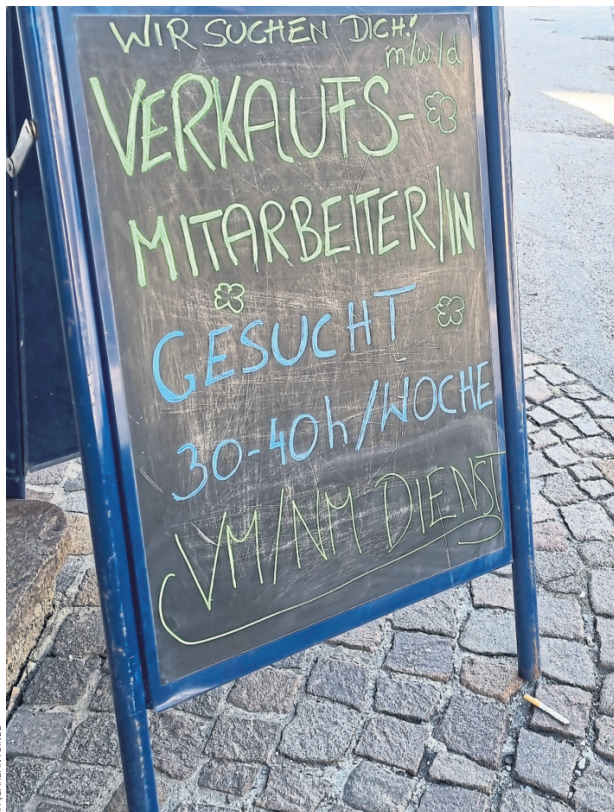 WIR SUCHEN DICH!
m/w/d
VERKAUFS-
MITARBEITER/IN
GESUCHT
30-40h/WOCHE
VM/NM DIENST